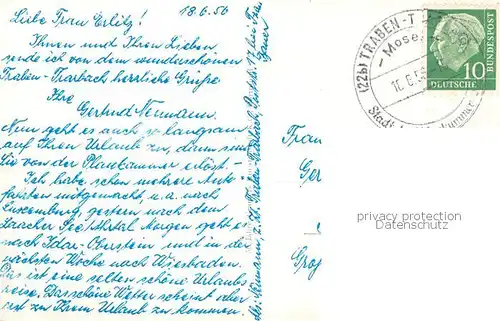 Liebe Frau Erlitz! 18.6.56
Ihnen und Ihren Lieben
sende ich von dem wunderschönen
Traben-Trarbach herrliche Grüße
Ihre
Gertrud Neumann.
Nun geht es auch so langsam
auf Ihren Urlaub zu, dann sind
Sie von der erlöst.-
Ich habe schon mehrere Auto-
fahrten mitgemacht, u.a. nach
Luxemburg, gestern nach dem
Laacher See/Ahrtal. Morgen geht es
nach Idar-Oberstein und in der
nächsten Woche nach Wiesbaden.
Das ist eine selten schöne Urlaubs
reise. Das schöne Wetter scheint aber
erst zu Ihrem Urlaub zu kommen.
Neumann, z. Zt. Traben-Trarbach, bei Frau
(22b) TRABEN-T
- Mosel
Stadt
10
DEUTSCHE
BUNDESPOST
Frau
Ger
Groß
privacy protection
Datenschutz